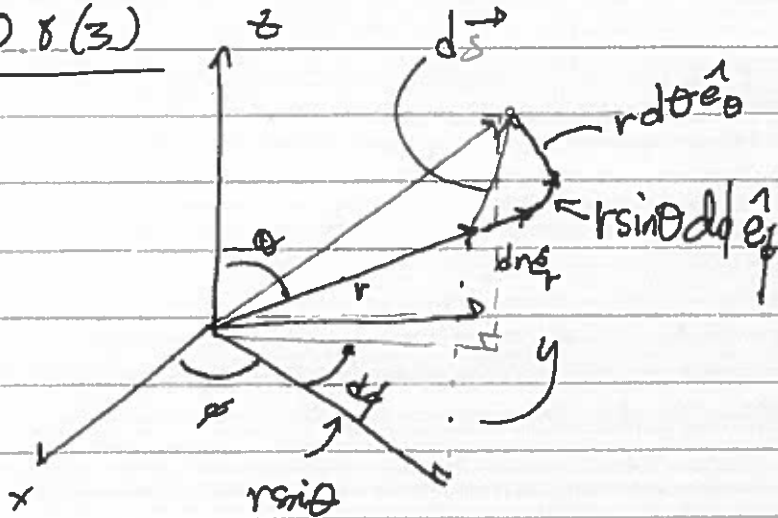 8 (3)
z
ds
r dθ ê_θ
r sinθ dϕ ê_ϕ
dr ê_r
θ
r
y
dϕ
ϕ
x
r sinθ